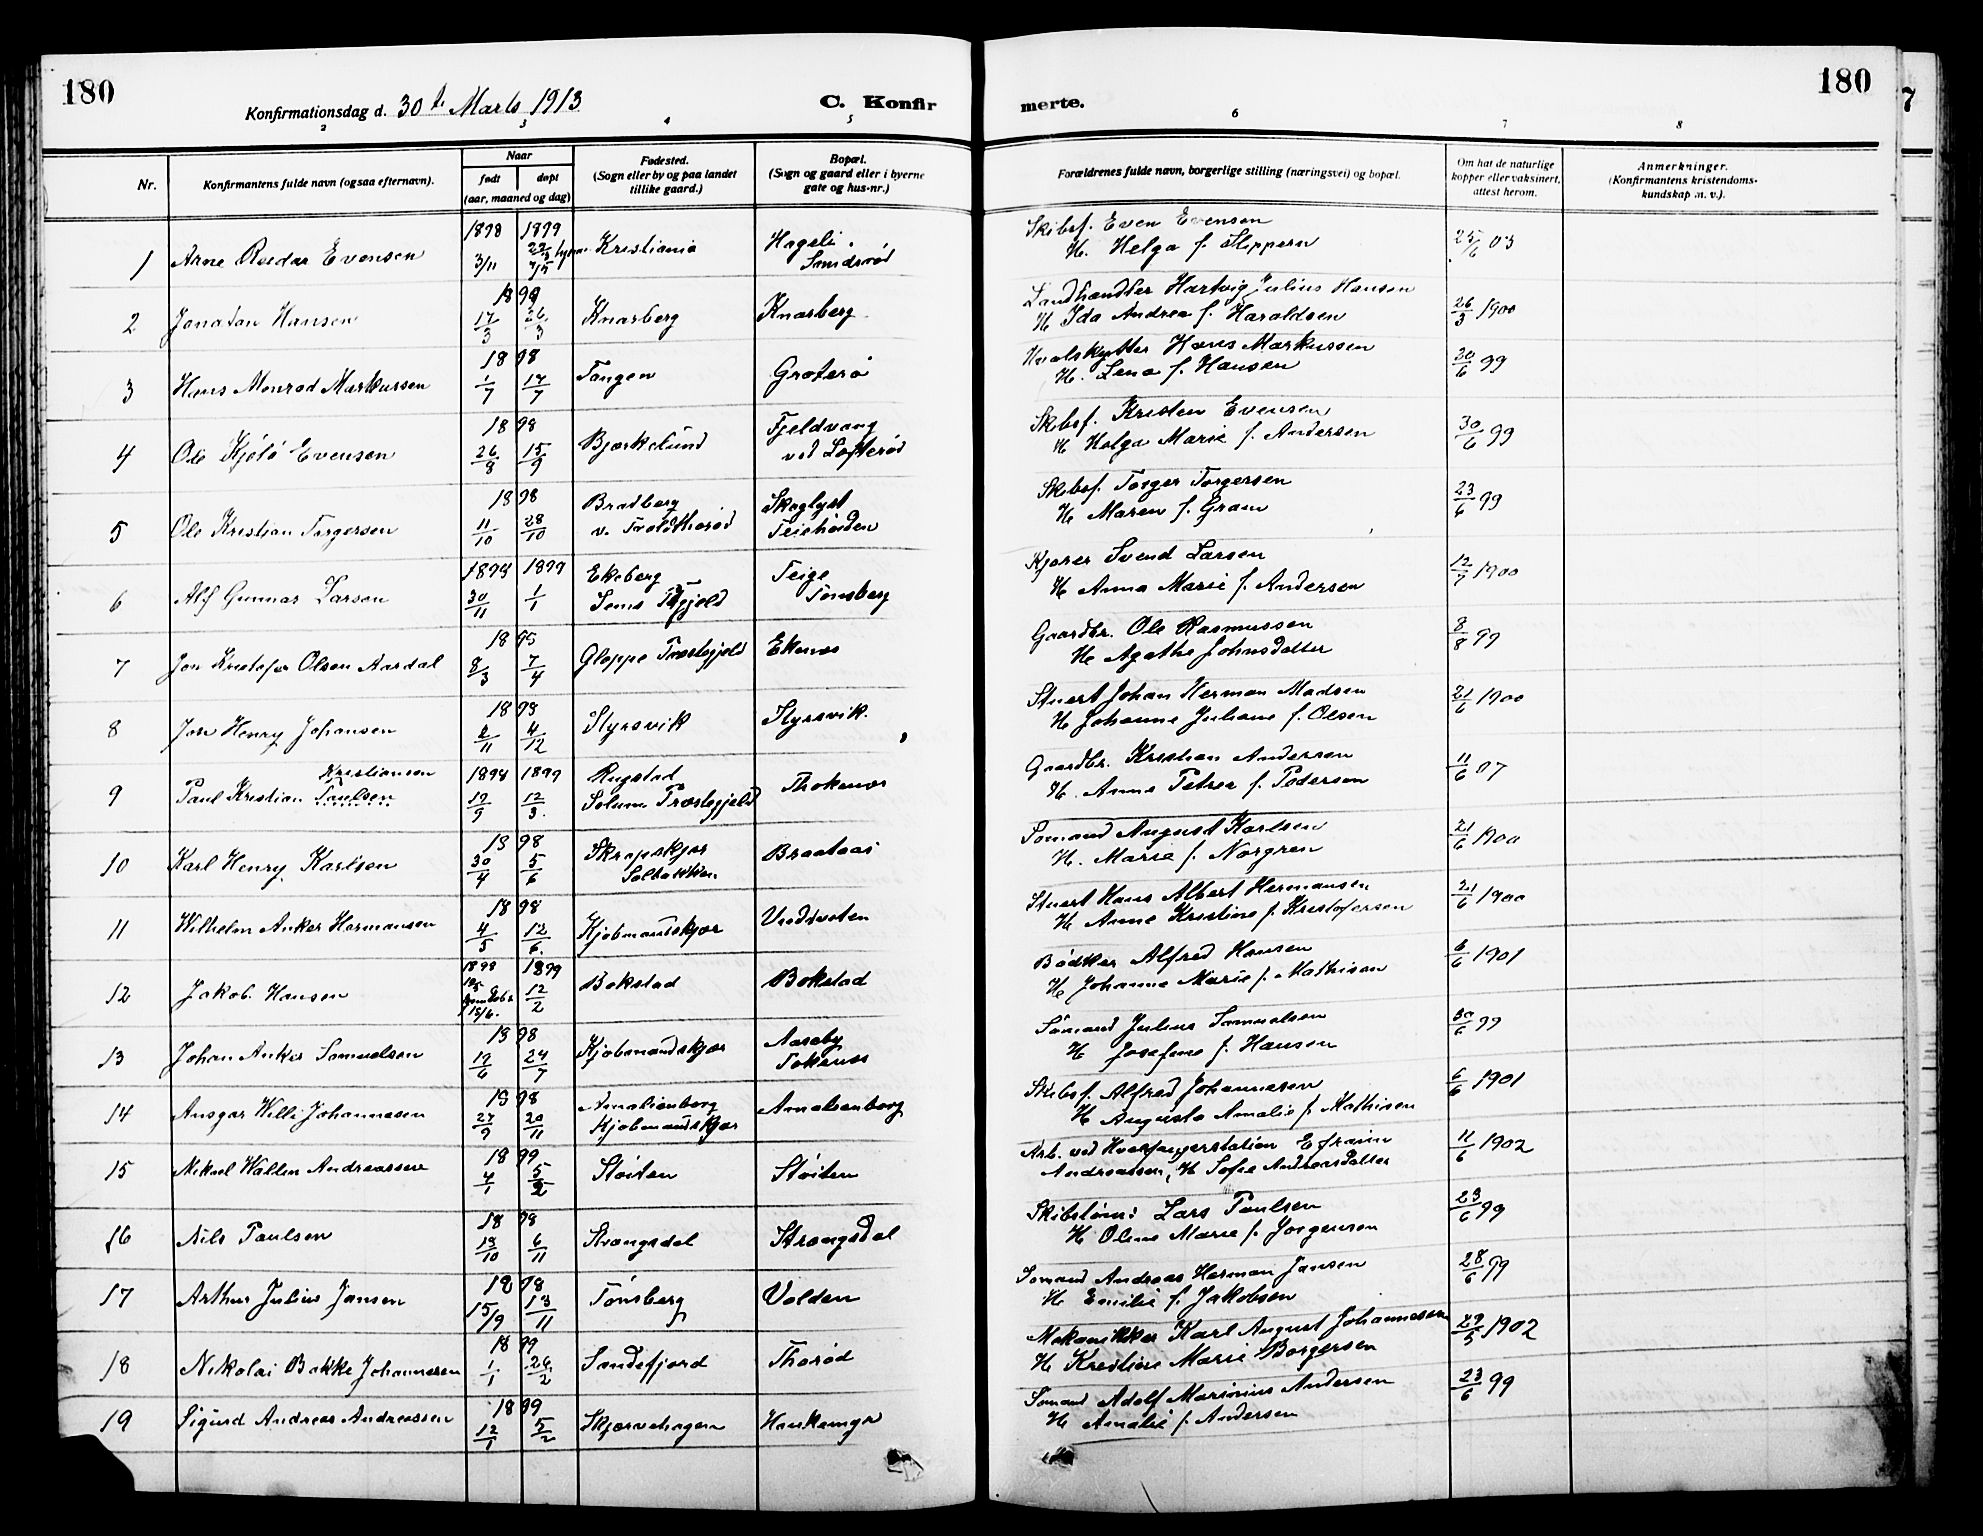 180
180
7
Konfirmationsdag d. 30te Marts 1913
C. Konfirmerte.
2 3 4 5 6 7 8
Nr.
Konfirmantens fulde navn (ogsaa efternavn).
Naar
født døpt
(aar, maaned og dag)
Fødested.
(Sogn eller by og paa landet
tillike gaard.)
Bopæl.
(Sogn og gaard eller i byerne
gate og hus-nr.)
Forældrenes fulde navn, borgerlige stilling (næringsvei) og bopæl.
Om hat de naturlige
kopper eller vaksinert,
attest herom.
Anmerkninger.
(Konfirmantens kristendoms-
kundskap m. v.).
1 Arne Reidar Evensen 1898 3/11 1899 Kristiania Hageli Sandsrød
Skibsf. Even Evensen
H. Helga f. 25/6 03
2 Jonatan Hansen 1899 17/3 26/3 Knarberg Knarberg
Landhandler Hartvig Julius Hansen
H. Ida Andrea f. Haraldsen 26/3 1900
3 Hans Monrad Markussen 1898 1/7 17/7 Tangen Groterø
Hvalskytter Hans Markussen
H. Lena f. Hansen 30/6 99
4 Ole Kjølø Evensen 1898 26/8 15/9 Bjørkelund Fjeldvang
ved Løfterød
Skibsf. Kristen Evensen
H. Helga Marie f. Andersen 30/6 99
5 Ole Kristian Torgersen 1898 11/10 28/10 Bradberg
v. Troldthorød Skoglyst
Teiehøiden
Skibsf. Torger Torgersen
H. Maren f. Gram 23/6 99
6 Alf Gunnar Larsen 1898 30/11 1899 1/1 Ekeberg
Sems Prgjeld Teige
Tønsberg
Kjører Svend Larsen
H. Anna Marie f. Andersen 12/7 1900
7 Jon Kristofer Olsen Aardal 1895 8/3 7/4 Gloppe Præstegjeld Ekenæs
Gaardbr. Ole Rasmussen
H. Agathe Johnsdatter 8/8 99
8 Jon Henry Johansen 1898 2/11 4/12 Styrsvik Styrsvik.
Stuert Johan Herman Madsen
H. Johanne Juliane f. Olsen 21/6 1900
9 Paul Kristian Paulsen Kristiansen 1898 12/9 1899 12/3 Rugstad
Solum Præstegjeld Thokenæs
Gaardbr. Kristian Andersen
H. Anne Petrea f. Pedersen 11/6 07
10 Karl Henry Karlsen 1898 30/4 5/6 Skrapskjær
Solbakken Braataas
Sømand August Karlsen
H. Marie f. Norgren 21/6 1900
11 Wilhelm Anker Hermansen 1898 4/5 12/6 Kjøbmandskjær
Stuert Hans Albert Hermansen
H. Anne Kristine f. Kristofersen 21/6 1900
12 Jakob Hansen 1898 1899 12/2 Bokstad Bokstad
Bødker Alfred Hansen
H. Johanne Marie f. Mathisen 6/6 1901
13 Johan Anker Samuelsen 1898 12/6 24/7 Kjøbmandskjær Aaseby
Tokenæs
Sømand Julius Samuelsen
H. Josefine f. Hansen 30/6 99
14 Ansgar Willi Johannesen 1898 27/9 20/11 Amalienborg
Kjøbmandskjær Amalienborg
Skibsf. Alfred Johannesen
H. Augusta Amalie f. Mathisen 6/6 1901
15 Mikael Wallin Andreassen 1899 4/1 5/2 Støiten Støiten
Arb. ved Hvalfangerstation Efraim
Andreassen, H. Sofie Andreasdatter 11/6 1902
16 Nils Paulsen 1898 13/10 6/11 Strangsdal Strangsdal
Skibstøm: Lars Paulsen
H. Oline Marie f. Jørgensen 23/6 99
17 Arthur Julius Jansen 1898 15/9 13/11 Tønsberg Volden
Sømand Andreas Herman Jansen
H. Emilie f. Jakobsen 28/6 99
18 Nikolai Bakke Johannesen 1899 1/1 26/2 Sandefjord Thorød
Mekanikker Karl August Johannesen
H. Kristine Marie Borgersen 29/5 1902
19 Sigurd Andreas Andreassen 1899 12/1 5/2 Skjærvehagen
Sømand Adolf Marinius Andersen
H. Amalie f. Andersen 23/6 99